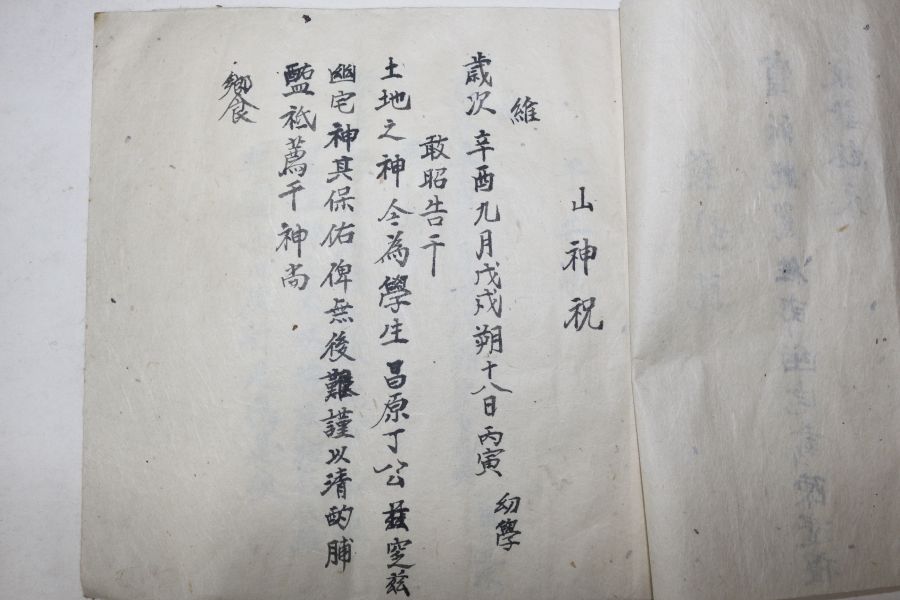 山神祝
維
歲次辛酉九月戊戌朔十八日丙寅 幼學
敢昭告于
土地之神今為學生昌原丁公玆窆玆
幽宅神其保佑俾無後艱謹以清酌脯
醢祗薦于神尚
饗